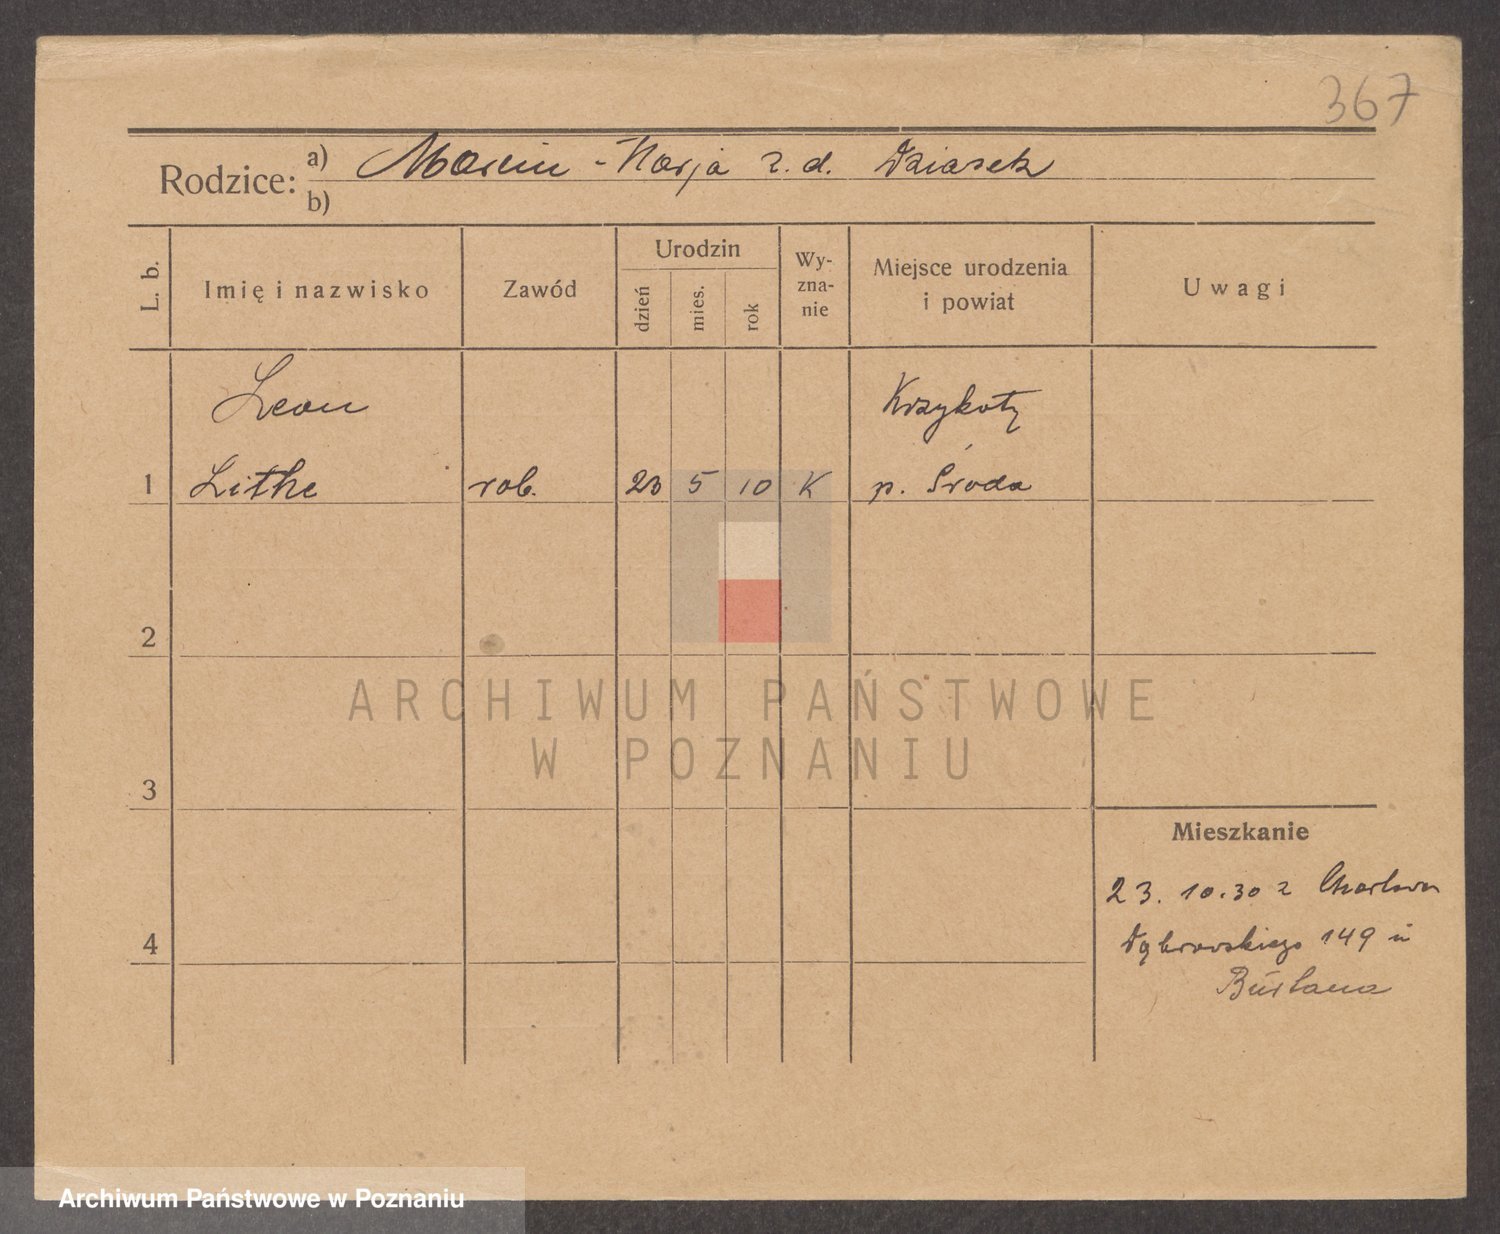 367
Rodzice: a) Marcin - Marja z. d. Dziasek
b)
L. b. Imię i nazwisko Zawód Urodzin dzień mies. rok Wyznanie Miejsce urodzenia i powiat Uwagi
Leon Krzykosy
1 Lithe rob. 23 5 10 K p. Środa
2
ARCHIWUM PAŃSTWOWE
W POZNANIU
3
Mieszkanie
23. 10. 30 z
4 Dąbrowskiego 149 u
Archiwum Państwowe w Poznaniu